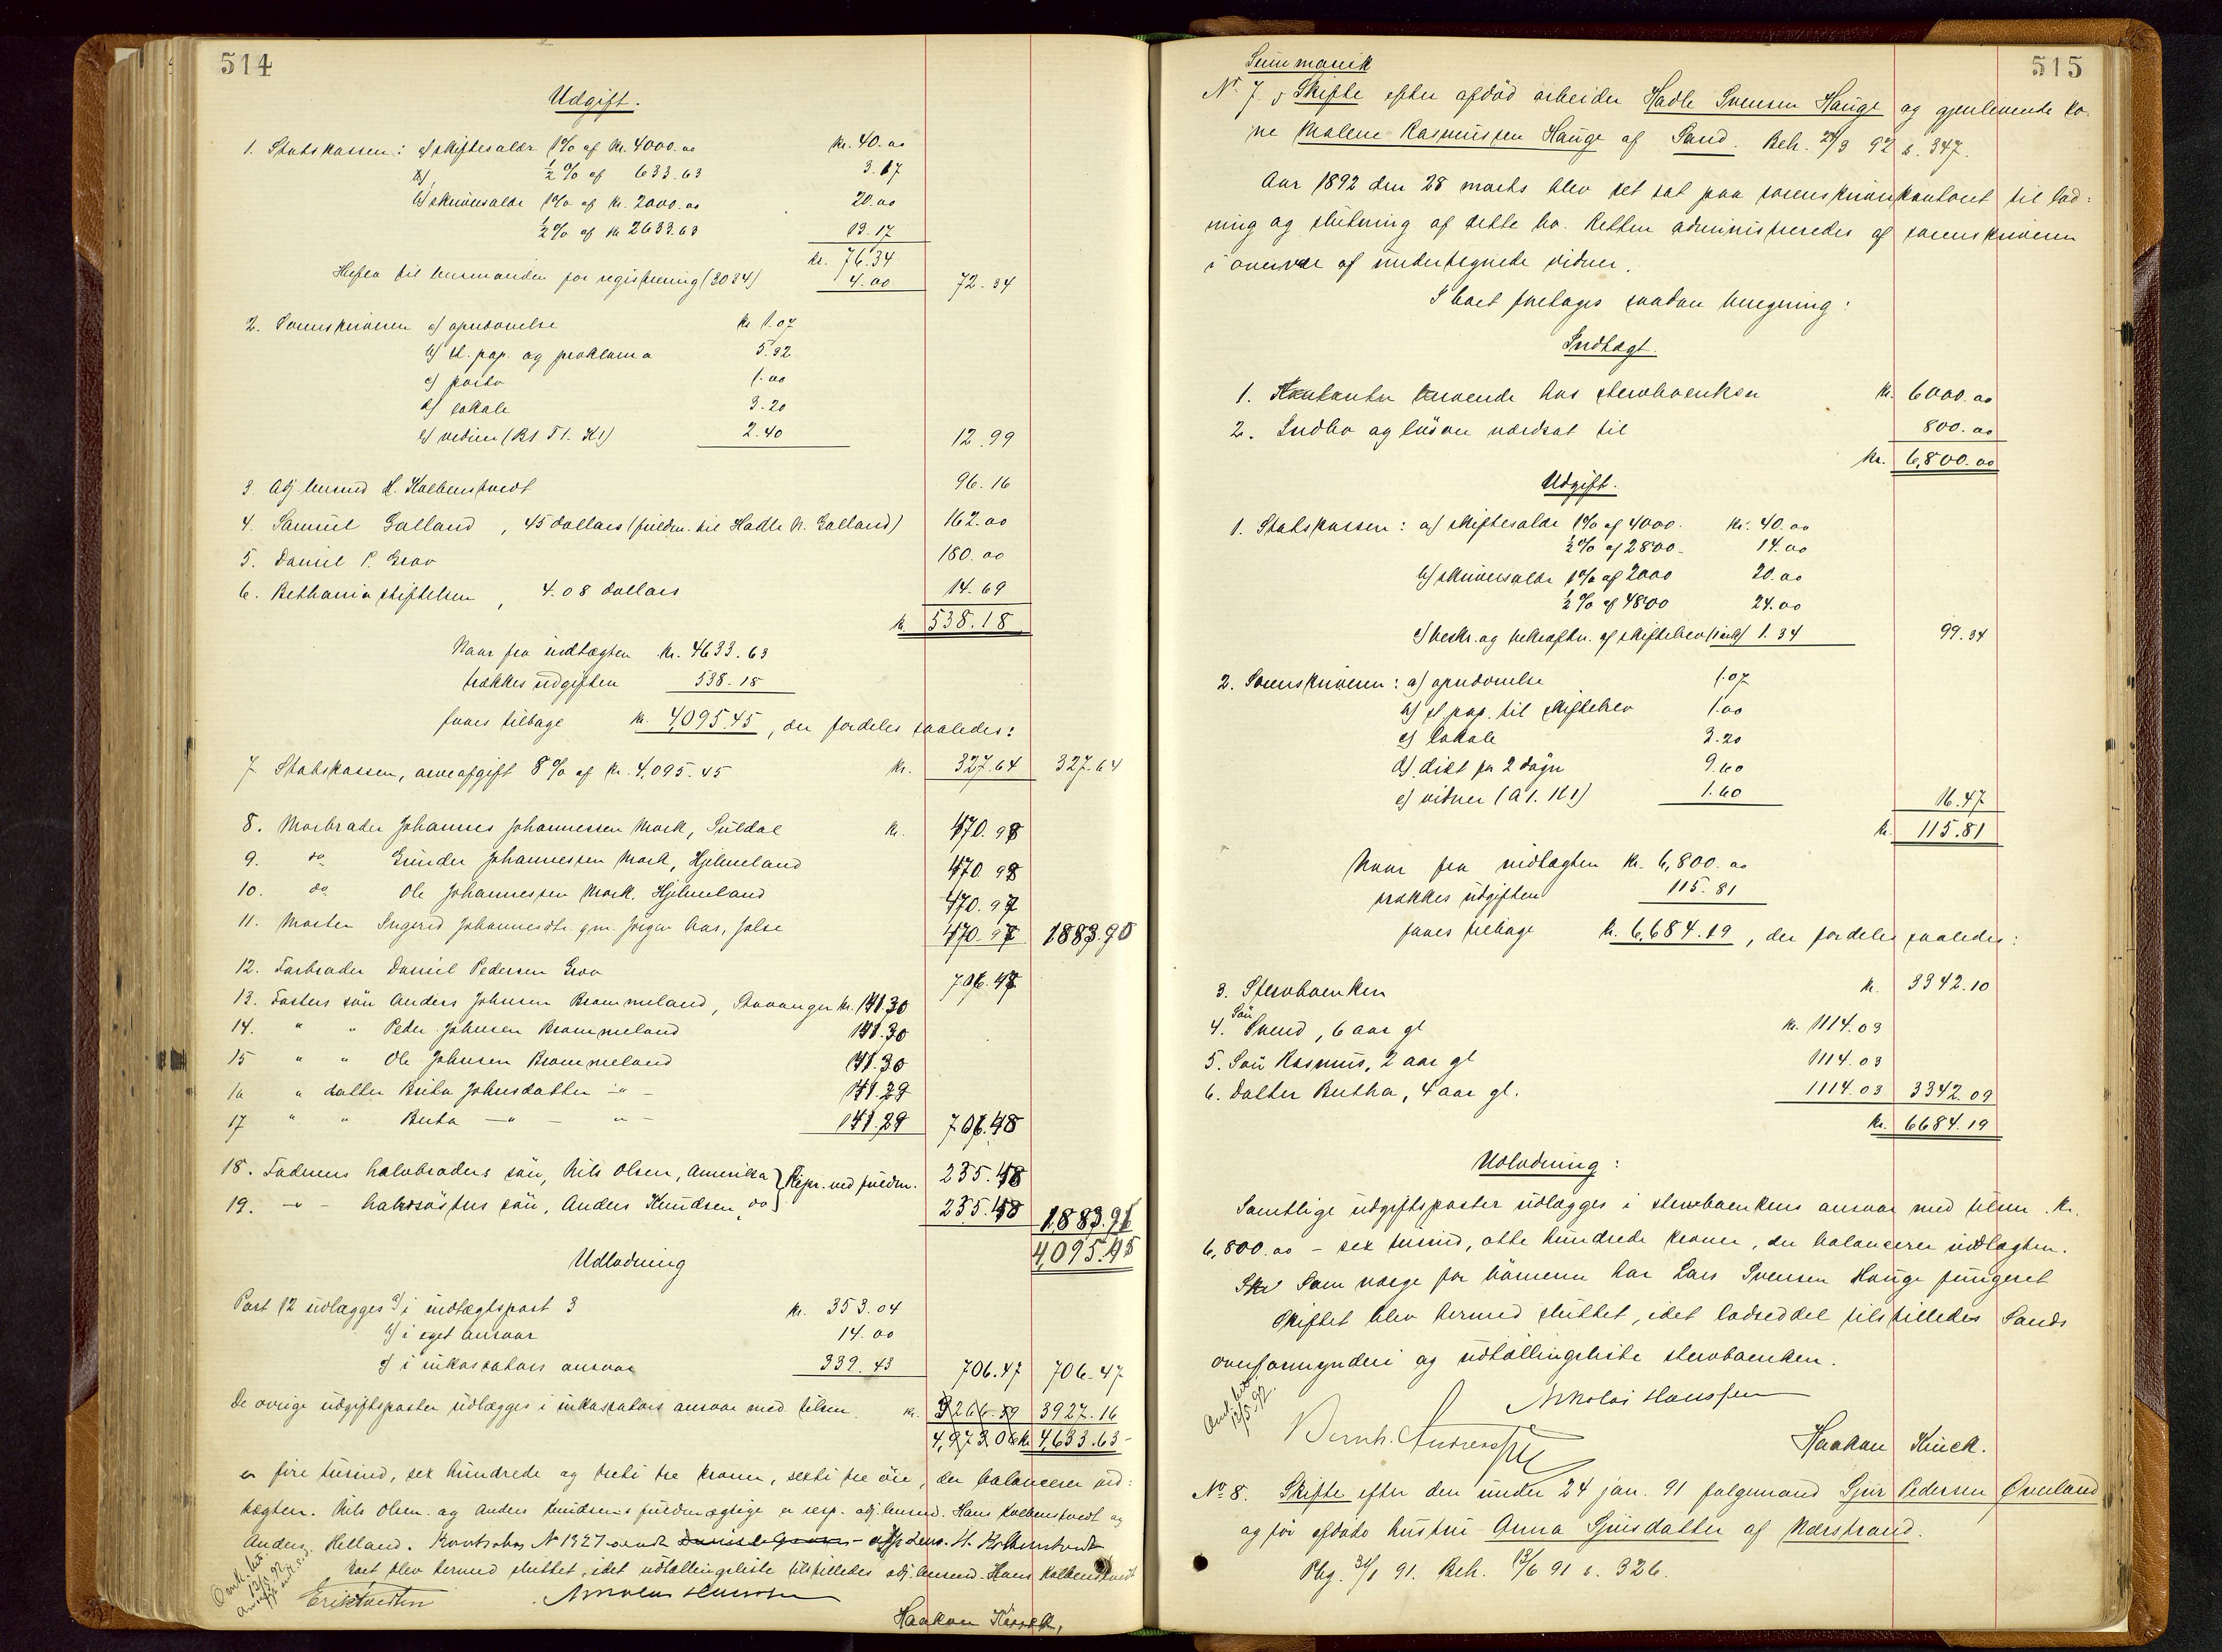 514
Udgift.
1. Statskassen: a) skiftesalær 1% af kr. 4000.00 kr. 40.00
½ % af 633.63 3.17
b) skriversalær 1% af kr. 2000.00 20.00
½ % af kr 2633.63 13.17
kr. 76.34
til lensmanden for registrering (3034) 4.00 72.34
2. Sorenskriveren a) opnævnelse kr 1.07
b) st. pap. og proklama 5.32
c) porto 1.00
d) lokale 3.20
e) vidner (R1 T1. K1) 2.40 12.99
3. Adj. lensmd H. Kolbenstvedt 96.16
4. Samuel Galland, 45 dollars (fuldm. til Hadle N. Galland) 162.00
5. Daniel P. Grov 180.00
6. Bethania stiftelsen, 4.08 dollars 14.69
kr. 538.18
Naar fra indtægten kr. 4633.63
trækkes udgiften 538.18
faaes tilbage kr. 4,095.45, der fordeles saaledes:
7. Statskassen, arveafgift 8% af kr. 4,095.45 kr. 327.64 327.64
8. Morbroder Johannes Johannessen Mork, Suldal kr. 470.98
9. do Gunder Johannessen Mork, Hjelmeland 470.98
10. do Ole Johannessen Mork, Hjelmeland 470.97
11. Moster Ingerid Johannesdtr. gm. Jørgen Aas, Jelse 470.97 1883.90
12. Farbroder Daniel Pedersen Grov 706.47
13. Fasters søn Anders Johnsen Brommeland, Stavanger kr. 141.30
14. " " Peder Johnsen Brommeland 141.30
15 " " Ole Johnsen Brommeland 141.30
16 " datter Brita Johnsdatter - " - 141.29
17 " " Berta - " - " - 141.29 706.48
18. Faderens halvbroders søn, Nils Olsen, Amerika } Repr. ved fuldm. 235.48
19. - " - halvsøsters søn, Anders Knudsen, do } 235.48 1,883.91
4,095.45
Udlodning
Post 12 udlægges a) i indtægtspost 3 kr. 353.04
b) i eget ansvar 14.00
c) i inkassators ansvar 339.43 706.47 706.47
De øvrige udgiftsposter udlægges i inkassators ansvar med tilsm. kr. 3266.59 3927.16
4,973.06 kr 4,633.63
er fire tusind, sex hundrede og treti tre kroner, sexti tre øre, der balancerer ind=
tægten. Nils Olsen og Anders Knudsens fuldmægtige er resp. adj. lensmd. Hans Kolbenstvedt og
Anders Helland. Kontrabog N 1927
Boet blev hermed sluttet, idet udtællingsliste tilstilledes adj. lensmd. Hans Kolbenstvedt
Nikolai Hanssen
Haakon Kinck.
515
Summarisk
No 7. Skifte efter afdød arbeider Hadle Svensen Hauge og gjenlevende ko-
ne Malene Rasmussen Hauge af Sand. Beh. 24/3 92 s. 347.
Aar 1892 den 28 marts blev ret sat paa sorenskriverkontoret til lod=
ning og slutning af dette bo. Retten administreredes af sorenskriveren
i overvær af undertegnede vidner.
I boet foretages saadan beregning:
Indtægt.
1. Kontanter beroende hos stervboenken kr. 6000.00
2. Indbo og løsøre værdsat til 800.00
kr. 6,800.00
Udgift.
1. Statskassen: a) skiftesalær 1% af 4000. kr. 40.00
½ % af 2800- 14.00
b) skriversalær 1% af 2000 20.00
½ % af 4800 24.00
c) beskr. og bekræftn. af skiftebrev 1.34 99.34
2. Sorenskriveren: a) opnævnelse 1.07
b) st pap. til skiftebrev 1.00
c) lokale 3.20
d) diæt for 2 døgn 9.60
e) vidner (A1. K1) 1.60 16.47
kr. 115.81
Naar fra indtægten kr. 6,800.00
trækkes udgiften 115.81
faaes tilbage kr. 6,684.19, der fordeles saaledes:
3. Stervboenken kr. 3342.10
4. Søn Svend, 6 aar gl kr. 1114.03
5. Søn Rasmus, 2 aar gl 1114.03
6. Datter Bertha, 4 aar gl. 1114.03 3342.09
kr. 6684.19
Udlodning:
Samtlige udgiftsposter udlægges i stervboenkens ansvar med tilsm. kr.
6,800.00 - sex tusind, otte hundrede kroner, der balancerer indtægten.
Som værge for børnene har Lars Svensen Hauge fungeret
Skiftet blev hermed sluttet, idet lodseddel tilstilledes Sands
overformynderi og udtællingsliste stervboenken.
Nikolai Hanssen
Haakon Kinck.
No 8. Skifte efter den under 24 jan. 91 føderaadsmand Sjur Pedersen Øverland
og før afdøde hustru Anna Sjursdatter af Nærstrand.
Reg. 31/1 91. Beh. 13/6 91 s. 326.